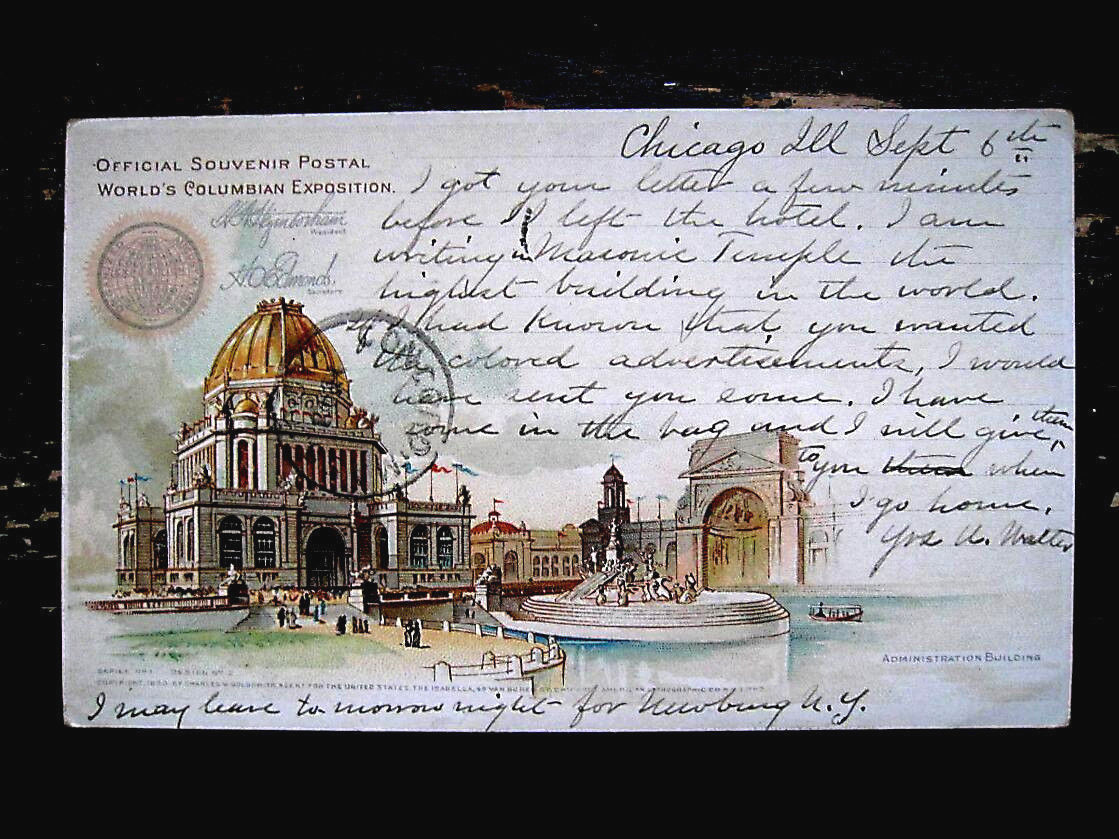 OFFICIAL SOUVENIR POSTAL
WORLD'S COLUMBIAN EXPOSITION.
President
Secretary
Chicago Ill Sept 6th
I got your letter a few minutes
before I left the hotel. I am
writing in Masonic Temple the
highest building in the world.
If I had known that you wanted
the colored advertisements, I would
have sent you some. I have
some in the bag and I will give them
to you them when
I go home.
Yrs U. Walter
ADMINISTRATION BUILDING
SERIES NO 1. DESIGN NO 2.
COPYRIGHT, 1893, BY CHARLES W. GOLDSMITH, AGENT FOR THE UNITED STATES, THE ISABELLA, 48 VAN BUREN ST. CHICAGO. AMERICAN LITHOGRAPHIC CO. N.Y.
I may leave to morrow night for Newburg N.Y.